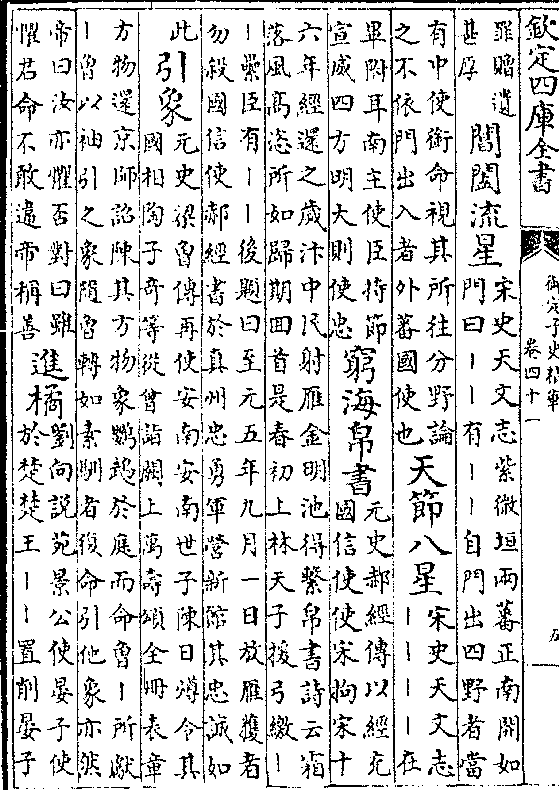 欽定四庫全書
御定子史精華
卷四十一
五
罪贈遺
甚厚
閶闔流星
宋史天文志紫微垣兩蕃正南開如
門曰丨丨有丨丨自門出四野者當
有中使銜命視其所往分野論
之不依門出入者外蕃國使也
天節八星
宋史天文志
丨丨丨丨在
畢附耳南主使臣持節
宣威四方明大則使忠
窮海帛書
元史郝經傳以經充
國信使使宋拘宋十
六年經還之歲汴中民射雁金明池得繫帛書詩云霜
落風高恣所如歸期回首是春初上林天子援弓繳丨
丨纍臣有丨丨後題曰至元五年九月一日放雁獲者
勿殺國信使郝經書於真州忠勇軍營新館其忠誠如
此
引象
元史梁曾傳再使安南安南世子陳日燇令其
國相陶子奇等從曾詣闕上萬壽頌金冊表章
方物還京師詔陳其方物象鸚鵡於庭而命曾丨所獻
丨曾以袖引之象隨曾轉如素馴者復命引他象亦然
帝曰汝亦懼否對曰雖
懼君命不敢違帝稱善
進橘
劉向說苑景公使晏子使
於楚楚王丨丨置削晏子